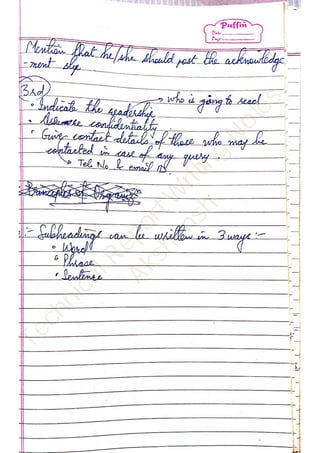 Puffin
Date
Page
Mention that he/she should post the acknowledge
-ment slip
3rd
→ who is going to read
• Indicate the readership
• Assurance confidentiality
• Give contact details of those who may be
contacted in case of any query.
↳ Tel No. & email ID.
Principles of
:- Subheadings can be written in 3 ways :-
• Word
• Phrase
• Sentence
Technical Report Writing Notes
Akshansh